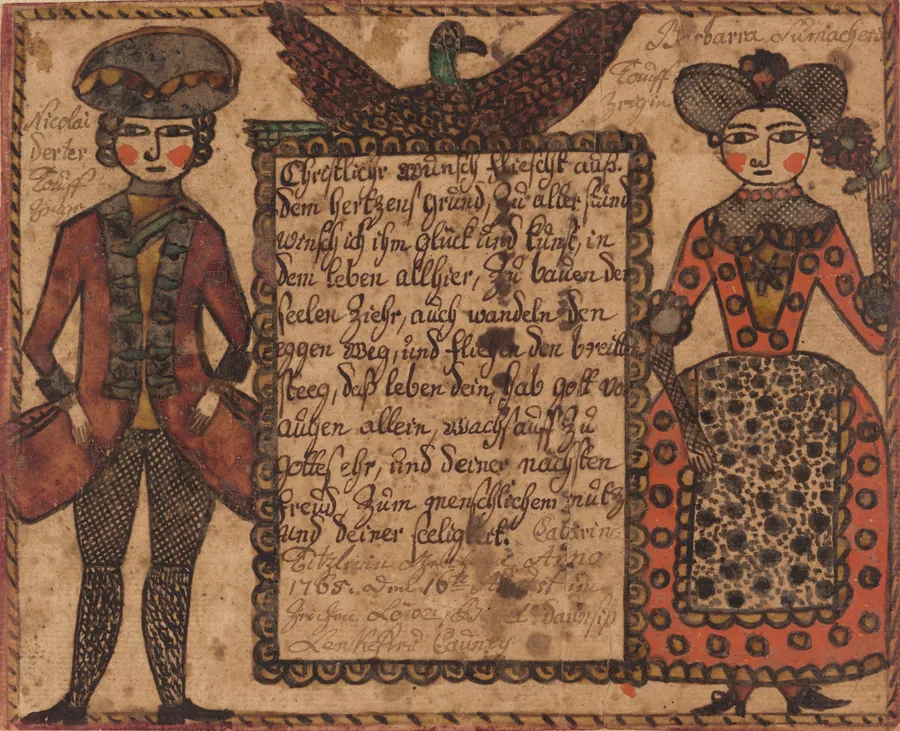 Nicolai
Derter
Tauff
Zeuge
Barbarra Sumacherin
Tauff
Zeugin
Christlichr Wunsch fliescht auß.
dem hertzens grund, Zu aller stund
winsch ich ihm glück und kunst, in
dem leben allhier, Zu bauen der
seelen Ziehr, auch wandeln den
eggen Weg, und fliehen den breitten
steeg, daß leben dein, hab gott vor
augen allein, wachs auff Zu
gottes ehr, und deiner nachsten
freud Zum menschlichem nutz
und deiner seeligkeit. Catarina
Anno
1765. Den 16ten August im
Zeichen
Lenkesterd Caunty